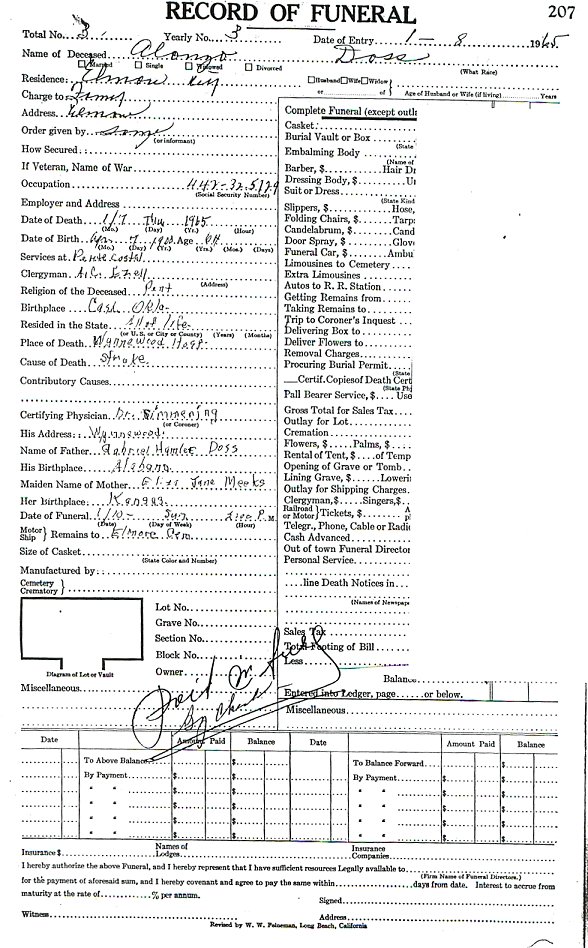 RECORD OF FUNERAL 207
Total No. 3. Yearly No. 3 Date of Entry 1 - 8 1965
Name of Deceased Alonzo Doss
Married Single Widowed Divorced (What Race)
Residence: Elmore City Husband Wife Widow or of Age of Husband or Wife (if living) Years
Charge to
Address Elmore
Order given by Same
(or informant)
How Secured:
If Veteran, Name of War
Occupation
(Social Security Number)
Employer and Address
Date of Death 1/7 Thu 1965
(Mo.) (Day) (Yr.) (Hour)
Date of Birth 7 Age
(Mo.) (Day) (Yr.) (Yrs.) (Mo.) (Days)
Services at Pentecostal
Clergyman
(Address)
Religion of the Deceased Pent
Birthplace Okla.
Resided in the State All of life
(or U.S. or City or County) (Years) (Months)
Place of Death Wynnewood Hosp.
Cause of Death Stroke
Contributory Causes
Certifying Physician Dr.
(or Coroner)
His Address Wynnewood
Name of Father Gabriel Hamlet Doss
His Birthplace Alabama
Maiden Name of Mother Jane Meeks
Her Birthplace Kansas
Date of Funeral 1/10 Sun 2:00 P.M.
(Date) (Day of Week) (Hour)
Motor Ship } Remains to Elmore Cem
Size of Casket
(State Color and Number)
Manufactured by:
Cemetery Crematory }
Lot No.
Grave No.
Section No.
Block No.
Owner
Diagram of Lot or Vault
Miscellaneous
Paid in full
By
Complete Funeral (except outl
Casket:
Burial Vault or Box
(State
Embalming Body
(Name of
Barber, $ Hair Dr
Dressing Body, $ U
Suit or Dress
(State Kind
Slippers, $ Hose,
Folding Chairs, $ Tarp
Candelabrum, $ Cand
Door Spray, $ Glov
Funeral Car, $ Ambu
Limousines to Cemetery
Extra Limousines
Autos to R. R. Station
Getting Remains from
Taking Remains to
Trip to Coroner's Inquest
Delivering Box to
Deliver Flowers to
Removal Charges
Procuring Burial Permit
(State
Certif. Copies of Death Cert
(State Ph
Pall Bearer Service, $ Use
Gross Total for Sales Tax
Outlay for Lot
Cremation
Flowers, $ Palms, $
Rental of Tent, $ of Temp
Opening of Grave or Tomb
Lining Grave, $ Loweri
Outlay for Shipping Charges
Clergyman, $ Singers, $
Railroad or Motor } Tickets, $
Telegr., Phone, Cable or Radi
Cash Advanced
Out of town Funeral Director
Personal Service
line Death Notices in
(Names of Newspape
Sales Tax
Total Footing of Bill
Less
Balance
Entered into Ledger, page or below.
Miscellaneous
Date Amount Paid Balance Date Amount Paid Balance
To Above Balance $ To Balance Forward $
By Payment $ By Payment $
" " $ " " $
" " $ " " $
" " $ " " $
" " $ " " $
Insurance $ Names of Lodges Insurance Companies
I hereby authorize the above Funeral, and I hereby represent that I have sufficient resources Legally available to
(Firm Name of Funeral Directors.)
for the payment of aforesaid sum, and I hereby covenant and agree to pay the same within days from date. Interest to accrue from
maturity at the rate of % per annum. Signed
Witness Address
Revised by W. W. Feineman, Long Beach, California